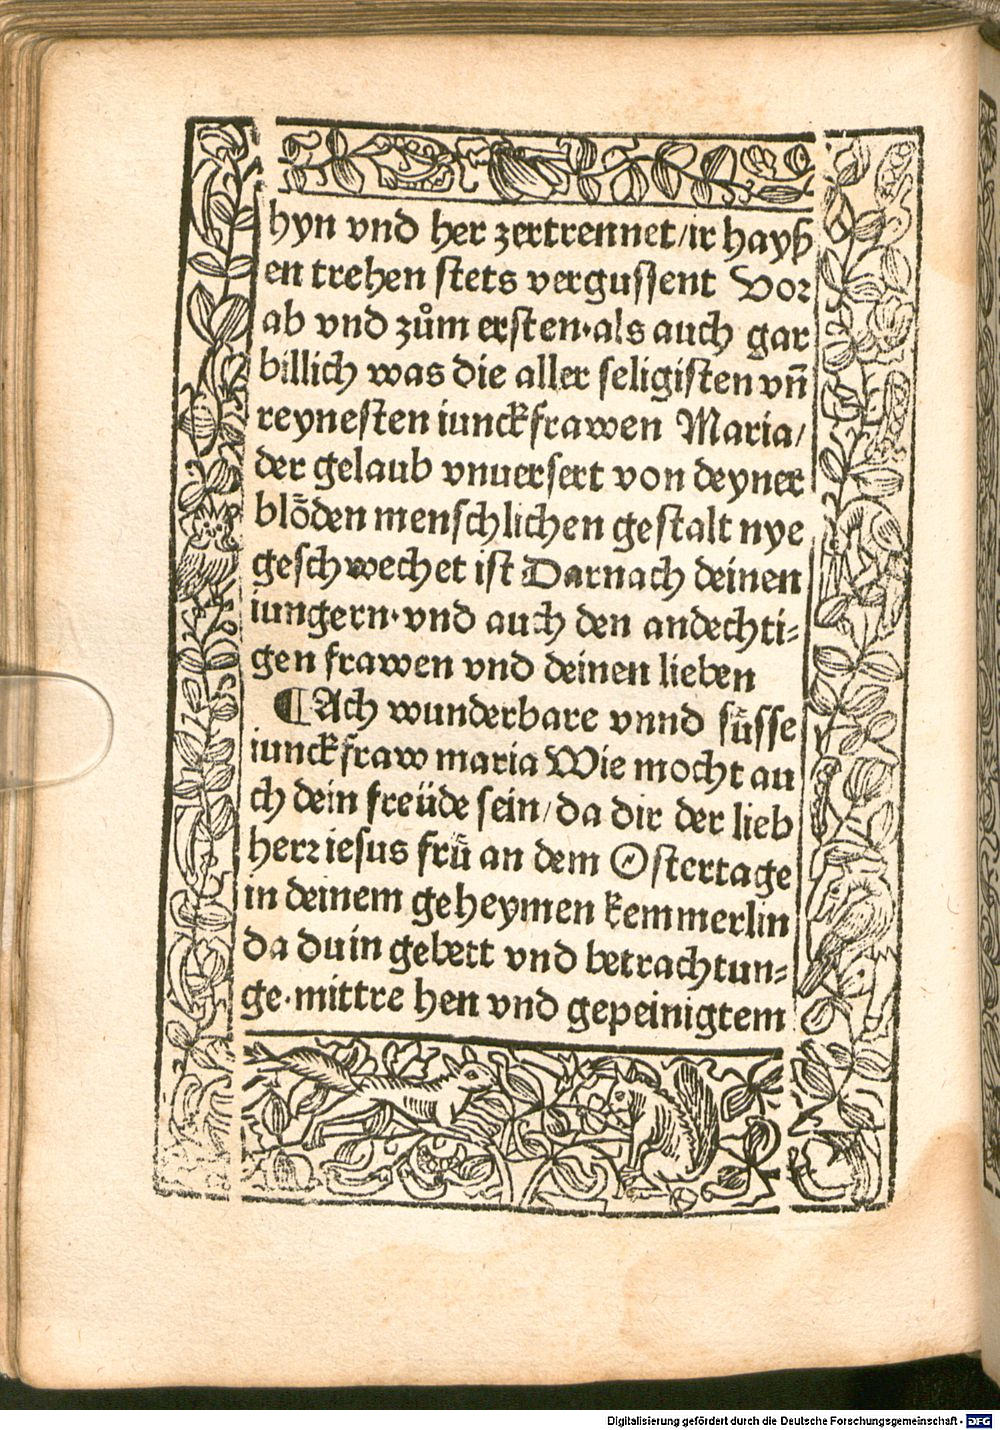 hyn vnd her zertrennet/ir hayß
en trehen stets vergussent Vor
ab vnd zům ersten·als auch gar
billich was die aller seligisten vñ
reynesten iunckfrawen Maria/
der gelaub vnuersert von deyner
blöden menschlichen gestalt nye
geschwechet ist Darnach deinen
iungern·vnd auch den andechti⸗
gen frawen vnd deinen lieben
¶Ach wunderbare vnnd süsse
iunckfraw maria Wie mocht au
ch dein freüde sein/da dir der lieb
herr iesus frü an dem Ostertage
in deinem geheymen kemmerlin
da du in gebett vnd betrachtun⸗
ge·mittre hen vnd gepeinigtem
Digitalisierung gefördert durch die Deutsche Forschungsgemeinschaft - DFG